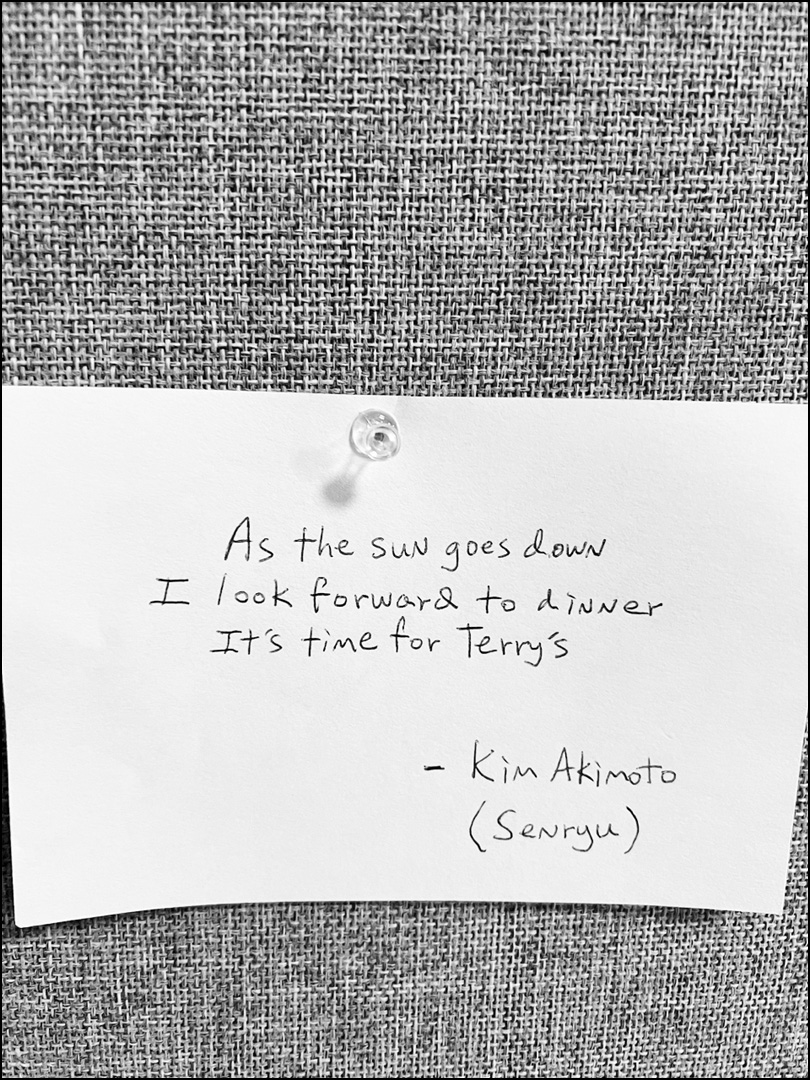 As the sun goes down
I look forward to dinner
It's time for Terry's
- Kim Akimoto
(Senryu)